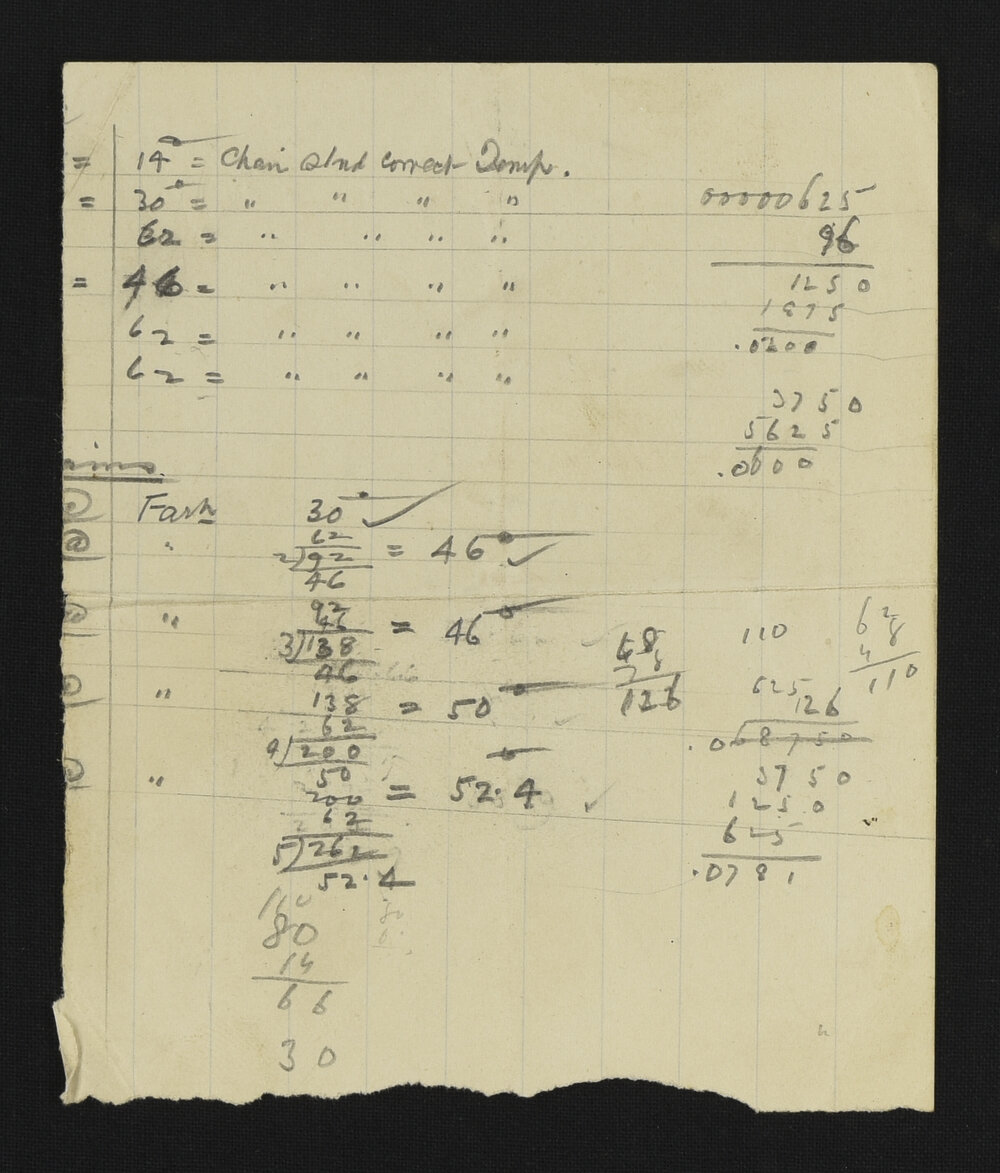 = 14° = Chain stnd correct Temp.
= 30° = " " " "
62 = " " " "
= 46 = " " " "
62 = " " " "
62 = " " " "
00000625
96
1250
1875
.0200
3750
5625
.0600
@ Fash 30° ✓
@ " 62
2)92 = 46° ✓
46
@ " 92
46
3)138 = 46°
46
@ " 138 = 50°
62
4)200
50
@ " 200 = 52.4° ✓
62
5)262
52.4
80
14
66
30
126
110
62
48
110
625
126
.068750
3750
1250
625
.0781